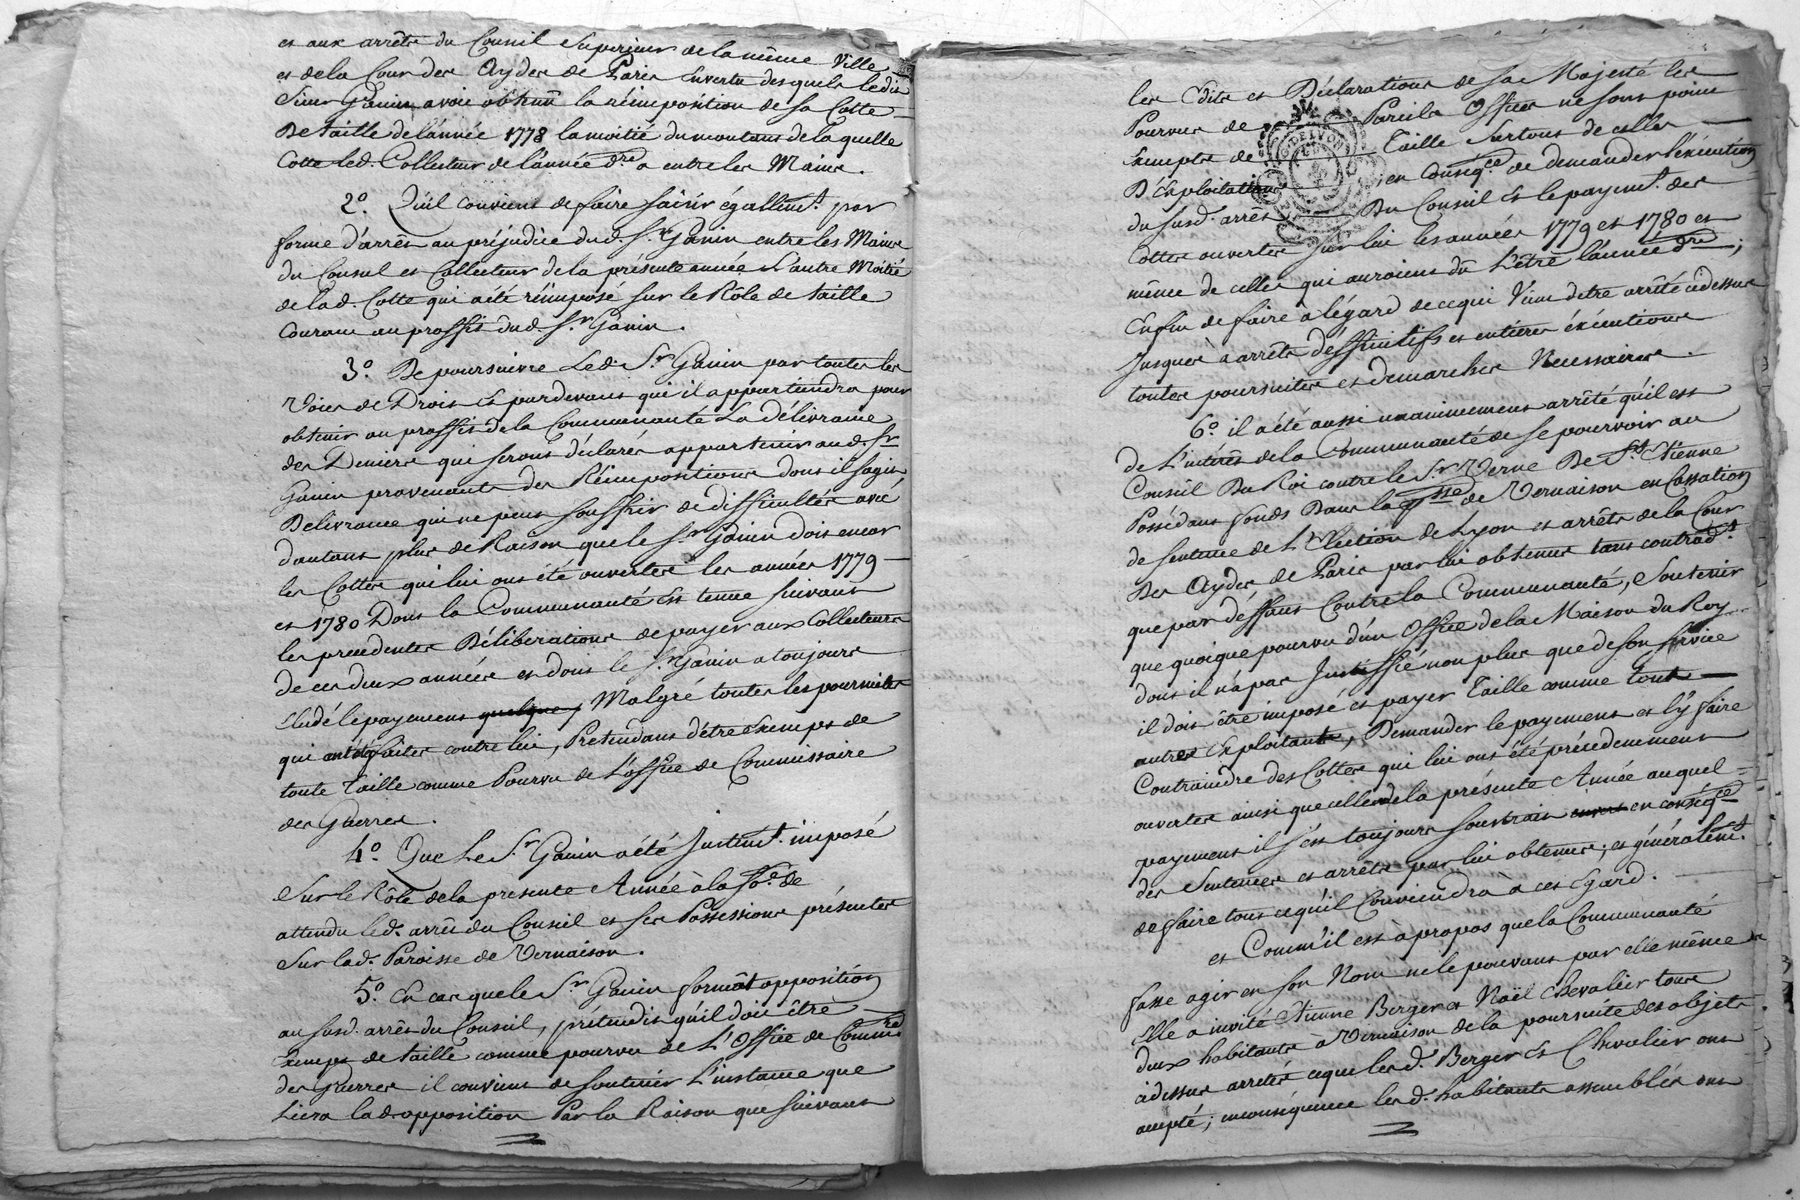 et aux arrêts du Conseil Superieur de la même Ville
et de la Cour des Aydes de Paris en vertu desquels ledit
Sieur Ganin avoit obtenu la réimposition de sa Cotte
De taille de l'année 1778 la moitié du montant de laquelle
Cotte led. Collecteur de l'année dre a entre les Mains.
2o. Qu'il convient de faire saisir égallemt. par
forme d'arrêt au préjudice dud. Sr. Ganin entre les Mains
du Consul et Collecteur de la présente année L'autre Moitié
de lad. Cotte qui a été réimposé sur le Rôle de taille
Courant au proffit dud. Sr. Ganin.
3o. De poursuivre Led. Sr. Ganin par toutes les
Voies de Droit Et pardevant qui il appartiendra pour
obtenir au proffit de la Communauté La délivrance
des Deniers que seront déclarés appartenir aud. Sr
Ganin provenants des Réimpositions dont il s'agit
Délivrance qui ne peut souffrir de difficultés avec
d'autant plus de Raison que le Sr. Ganin doit encor
les Cottes qui lui ont été ouvertes les années 1779
et 1780 Dont la Communauté Est tenue suivant
les precedentes Déliberations de payer aux Collecteurs
de ces deux années et dont le Sr. Ganin a toujours
éludé le payement quelque, Malgré toutes les poursuites
qui ont été faites contre lui, Pretendant d'être Exempt de
toute Taille comme Pourvu de L'office de Commissaire
des Guerres.
4o. Que Le Sr. Ganin a été Justemt. imposé
Sur le Rôle de la présente Année à la So.e de
attendu led. arrêt du Conseil et ses Possessions présentes
Sur lad. Paroisse de Vernaison.
5o. En cas que le Sr. Ganin formât opposition
au susd. arrêt du Conseil, prétendit qu'il doit être
Exempt de taille comme pourvu de L'Office de Commre
des Guerres il convient de soutenir L'instance que
Liera lad. opposition Par la Raison que suivant
les Edits et Déclarations de Sa Majesté les
Pourvus de Pareils Offices ne sont point
Exempts de Taille Surtout de celles
D'Exploitations en conseqce. de demander l'exécution
du susd. arrêt Du Conseil Et le payemt. des
Cottes ouvertes sur lui les années 1779 et 1780 et
même de celles qui auroient dû L'être l'année dre;
Enfin de faire a l'égard de ce qui Vient d'etre arrêté cidessus
Jusques a arrêts déffinitifs et entiéres éxécutions
toutes poursuites et demarches Necessaires.
6o. il a été aussi unanimement arrêté qu'il est
de L'intérêt de la Communauté de se pourvoir au
Conseil Du Roi contre le Sr. Verne De St. Etienne
Possédant fonds Dans la psse de Vernaison en Cassation
de Sentence de L'Election de Lyon et arrêts de la Cour
Des Aydes de Paris par lui obtenus tant contradt.
que par déffaut Contre la Communauté, Soutenir
que quoique pourvu d'un Office de la Maison du Roy
dont il n'a pas Justiffié non plus que de son service
il doit être imposé et payer Taille comme tout
autres Exploitants, Demander le payement et l'y faire
Contraindre des Cottes qui lui ont été précédemment
ouvertes ainsi que celle de la présente Année auquel
payement il s'est toujours soustrait en conséqce
des Sentences et arrêts par lui obtenus; et généralemt.
de faire tout ce qu'il Conviendra a cet Egard.
et Comm'il est à propos que la Communauté
fasse agir en son Nom ne le pouvant par elle même
Elle a invité Etienne Berger et Noël Chevalier tous
deux habitants a Vernaison de la poursuite des objets
cidessus arrêtés ce que les d. Berger Et Chevalier ont
accepté; en conséquence les d. habitants assemblés ont